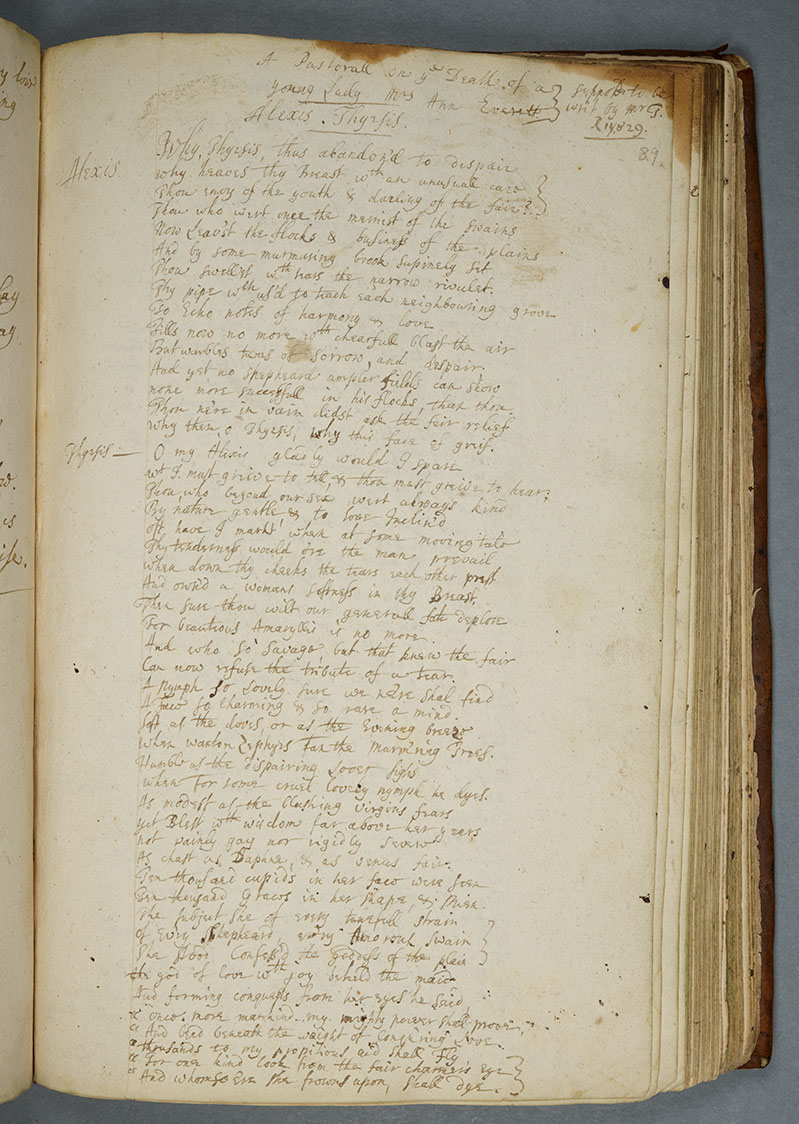 A Pastorall on yᵉ Death of a
young Lady Mrs Ann Everett
suppos'd to be
writ by Mr G.
Alexis. Thyrsis.
89
Alexis.
Why, Thyrsis, thus abandon'd to despair
why heaves thy Breast wth an unusual care
Thou envy of the youth & darling of the fair?
Thou who wert once the merriest of the swains
Now Leav'st the flocks & business of the plains
And by some murmuring brook supinely set
Thou swellest wth tears the narrow rivulet.
Thy pipe wch us'd to teach each neighbouring grove
To Echo notes of harmony & love
Fills now no more wth chearfull blast the air
But warbles tunes of sorrow, and despair.
And yet no shepheard ampler fields can show
none more successfull in his flocks, than thou
Thou nere in vain didst ask the fair relief
why then, o Thyrsis, why this face of grief.
Thyrsis
O my Alexis gladly would I spare
wt I must grieve to tell, & thou must greive to hear;
Thou, who beyond our sex wert always kind
By nature gentle & to love Inclin'd
oft have I markt when at some moving tale
Thy tenderness would ore the man prevail
when down thy cheeks the tears each other prest
And own'd a womans softness in thy Breast.
Then sure thou wilt our generall fate deplore
For beautious Amaryllis is no more.
And who so savage but that knew the fair
Can now refuse the tribute of a tear.
A Nymph so lovely sure we ne're shal find
A face so charming & so rare a mind.
Soft as the doves, or as the Evening breeze
When wanton Zephyrs Fan the Murm'ring Trees.
Humble as the dispairing Lover sighs
when For some cruel lovely nymph he dyes.
As modest as the blushing virgins fears
yet Blest wth wisdom far above her years
not vainly gay nor rigidly severe
As chast as Daphne, & as venus fair.
Ten thousand cupids in her face were seen
Ten thousand Graces in her shape, & Mien
The subject she of every tunefull strain
of Every Shepheard every Amorous swain
She stood Confess'd the Goddess of the plain
The god of love wth joy beheld the maid
And forming conquests from her eyes he said
"once more mankind my mighty power shall prove,
"And bend beneath the weight of Conquering Love.
"thousands to my propitious aid shall Fly
"For one kind look from the fair charmers Eye
"And whom so Ere she frowns upon, shall dye.